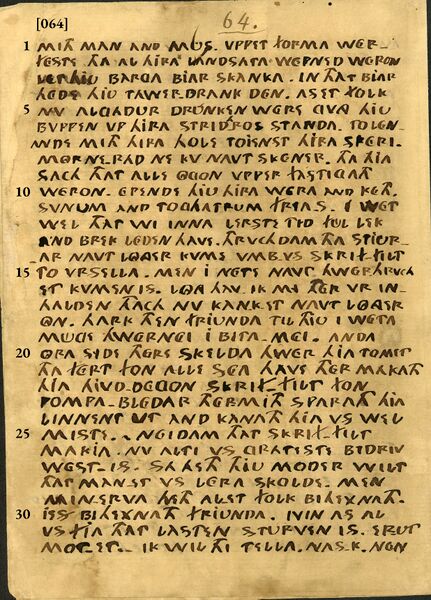 [064] 64.
1 MITH MAN AND MUS. VPPET FORMA WER-
FESTE. THA AL HIRA LANDSATA WEPNED WERON
LET HIU BARGA BIAR SKANKA. IN THAT BIAR
HEDE HIU TAWERDRANK DEN. AS ET FOLK
5 NV ALGADUR DRUNKEN WERE GVNG HIU
BVPPEN VP HIRA STRIDHROS STANDA. TO LEN-
ANDE MITH HIRA HOLE TOIENST HIRA SPERI.
MORNE-RAD NE KV NAVT SKENER. THA HIA
SACH THAT ALLE OGON VPPER FASTIGATH
10 WERON. EPENDE HIU HIRA WERA AND KETH.
SVNUM AND TOGHATRUM FRYAS. I WET
WEL THAT WI INNA LERSTE TYD FUL LEK
AND BREK LEDEN HAVE. THRVCH DAM THA STIUR-
AR NAVT LONGER KVME VMB VS SKRIF-FILT
15 TO VRSELLA. MEN I NETE NAVT HWER THRVCH
ET KVMEN IS. LONG HAV. IK MI THER VR IN-
HALDEN THACH NV KAN-K-ET NAVT LONGER
ON. HARK THEN FRIUNDA TIL THIU I WETA
MUGE HWERNEI I BITA-MEI. ANDA
20 ORA SIDE THERE SKELDA HWER HIA TOMET
THA FERT FON ALLE SEA HAVE THER MAKATH
HIA HIVD-DEGON SKRIF-FILT FON
POMPA-BLEDAR THERMITH SPARATH HIA
LINNENT UT AND KANATH HIA VS WEL
25 MISTE. NEIDAM THAT SKRIF-FILT
MAKIA. NV ALTI VS GRATESTE BIDRIV
WEST-IS. SA HETH THIU MODER WILT
THAT MAN.ET VS LERA SKOLDE. MEN
MINERVA HETH ALET FOLK BIHEXNATH.
30 IES BIHEXNATH FRIUNDA. IVIN AS AL
VS FIA THAT LASTEN STURVEN IS. ERUT
MOT-ET. IK WIL THI TELLA. NAS.K. NEN